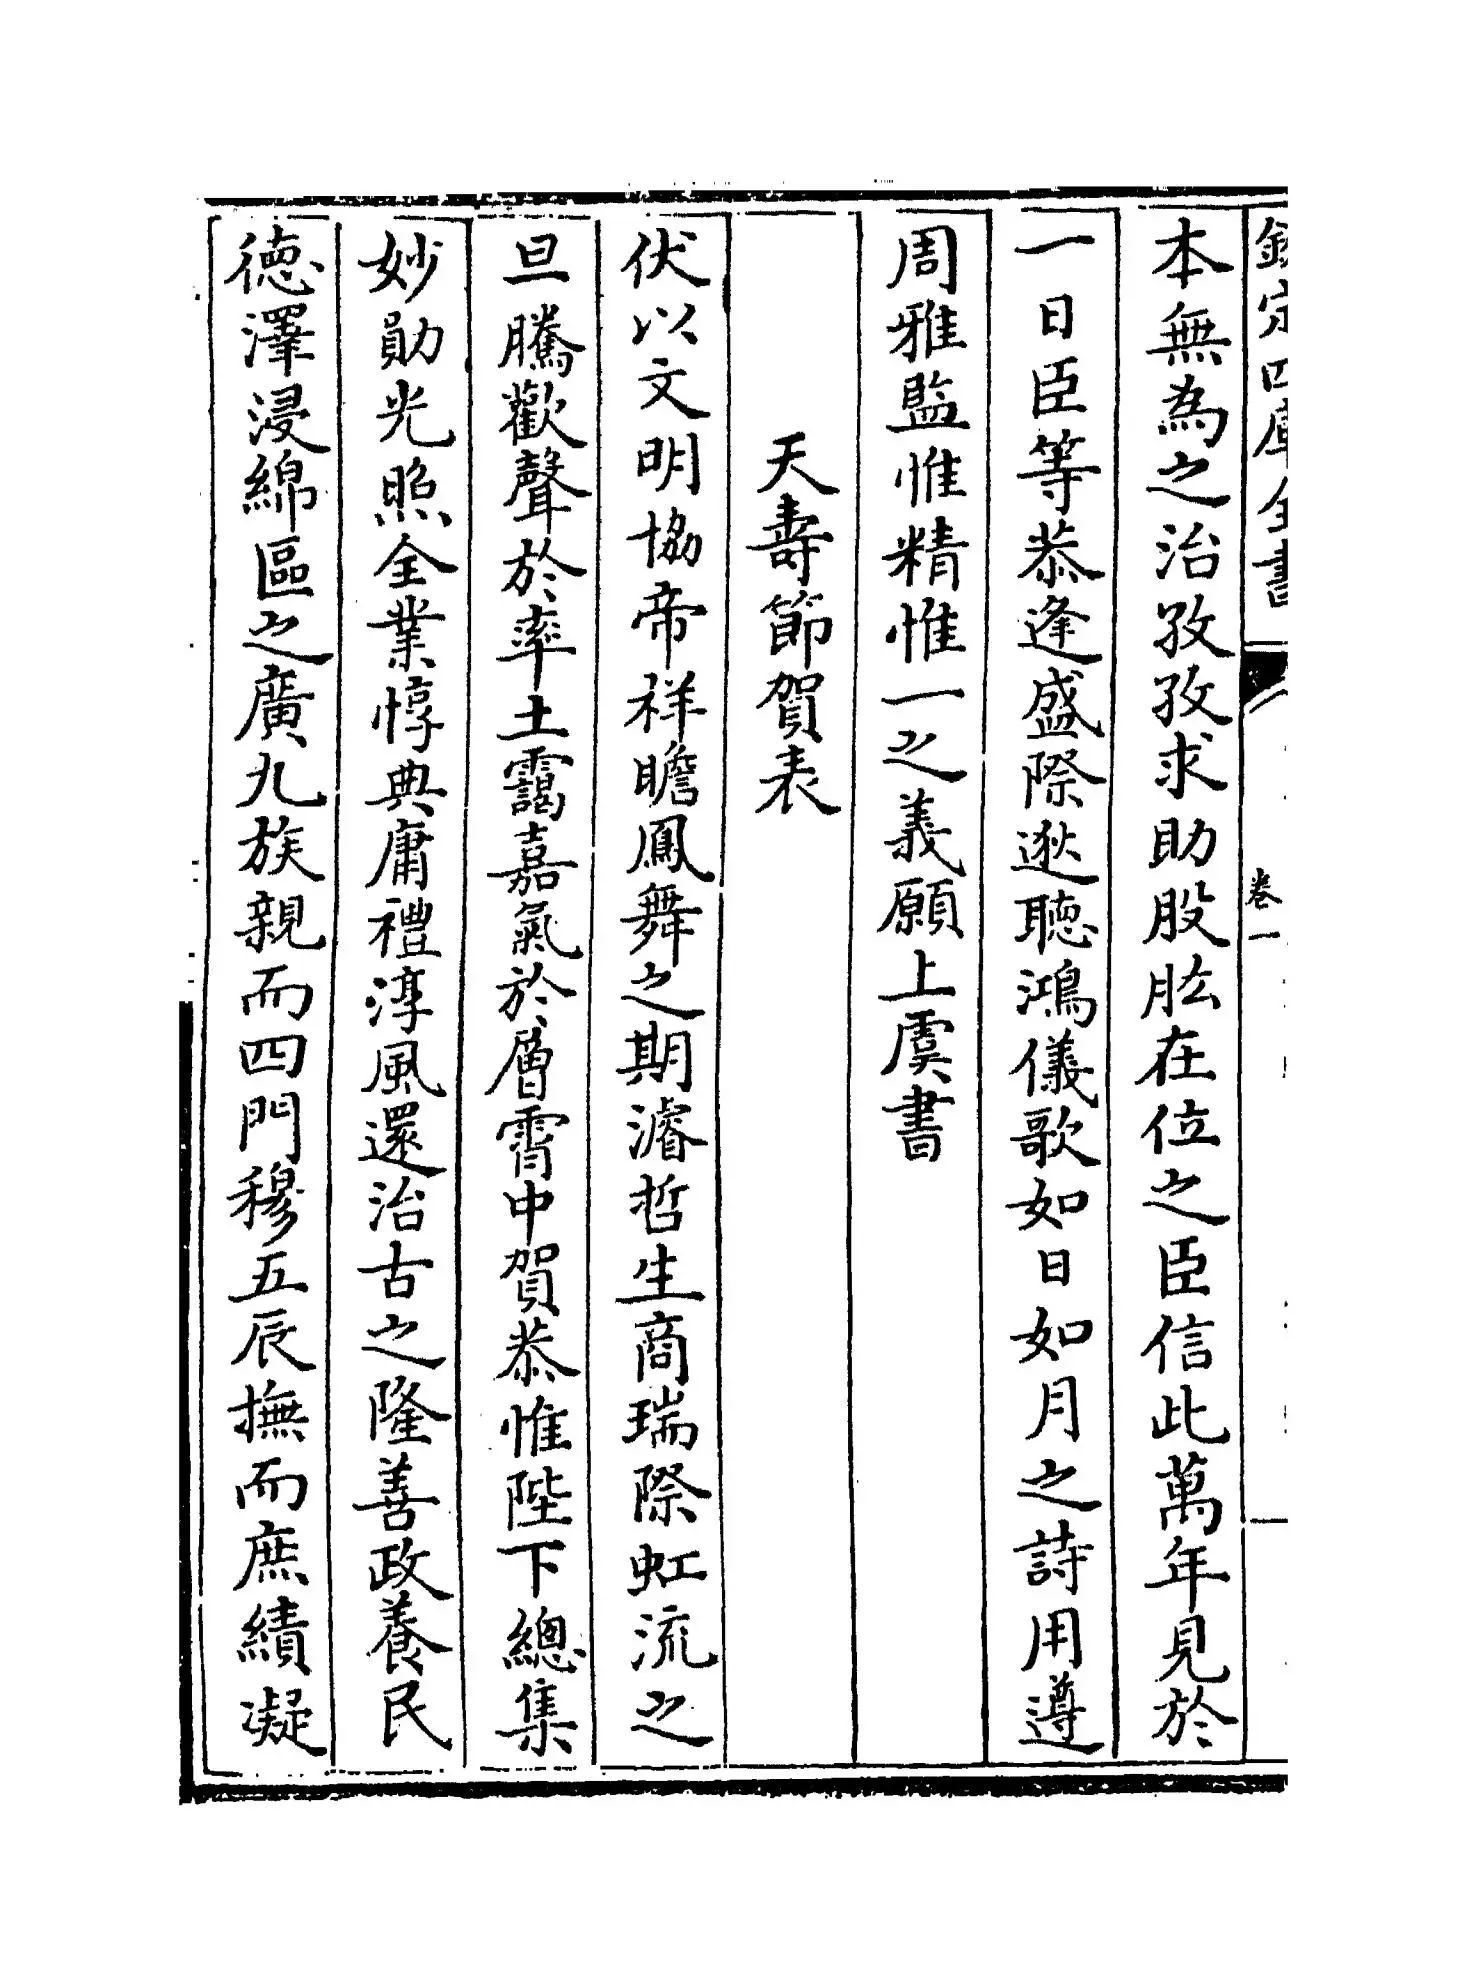 欽定四庫全書
卷一
本無為之治孜孜求助股肱在位之臣信此萬年見於
一日臣等恭逢盛際逖聽鴻儀歌如日如月之詩用遵
周雅監惟精惟一之義願上虞書
天壽節賀表
伏以文明協帝祥瞻鳳舞之期濬哲生商瑞際虹流之
旦騰歡聲於率土靄嘉氣於層霄中賀恭惟陛下總集
妙勛光照全業惇典庸禮淳風還治古之隆善政養民
德澤浸綿區之廣九族親而四門穆五辰撫而庶績凝